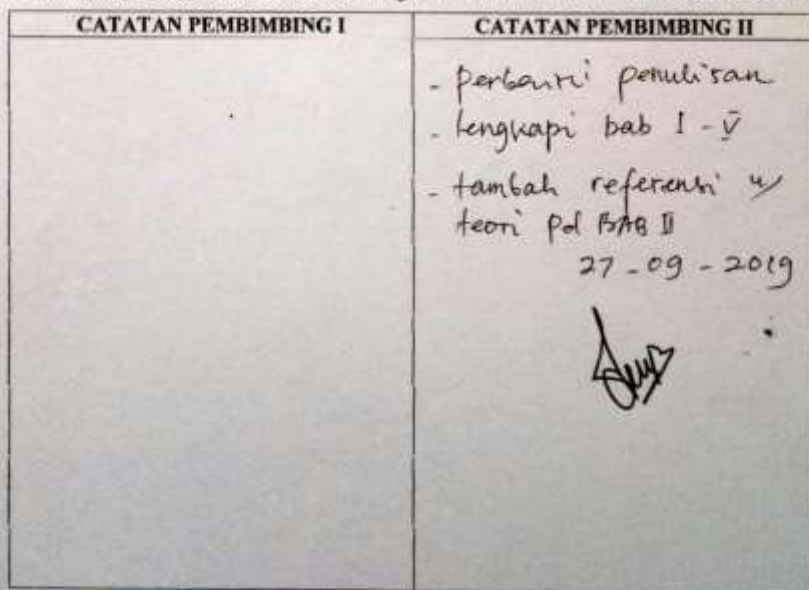 CATATAN PEMBIMBING I
CATATAN PEMBIMBING II
- perbaiki penulisan
- lengkapi bab I - V
- tambah referensi u/
teori pd BAB II
27 - 09 - 2019